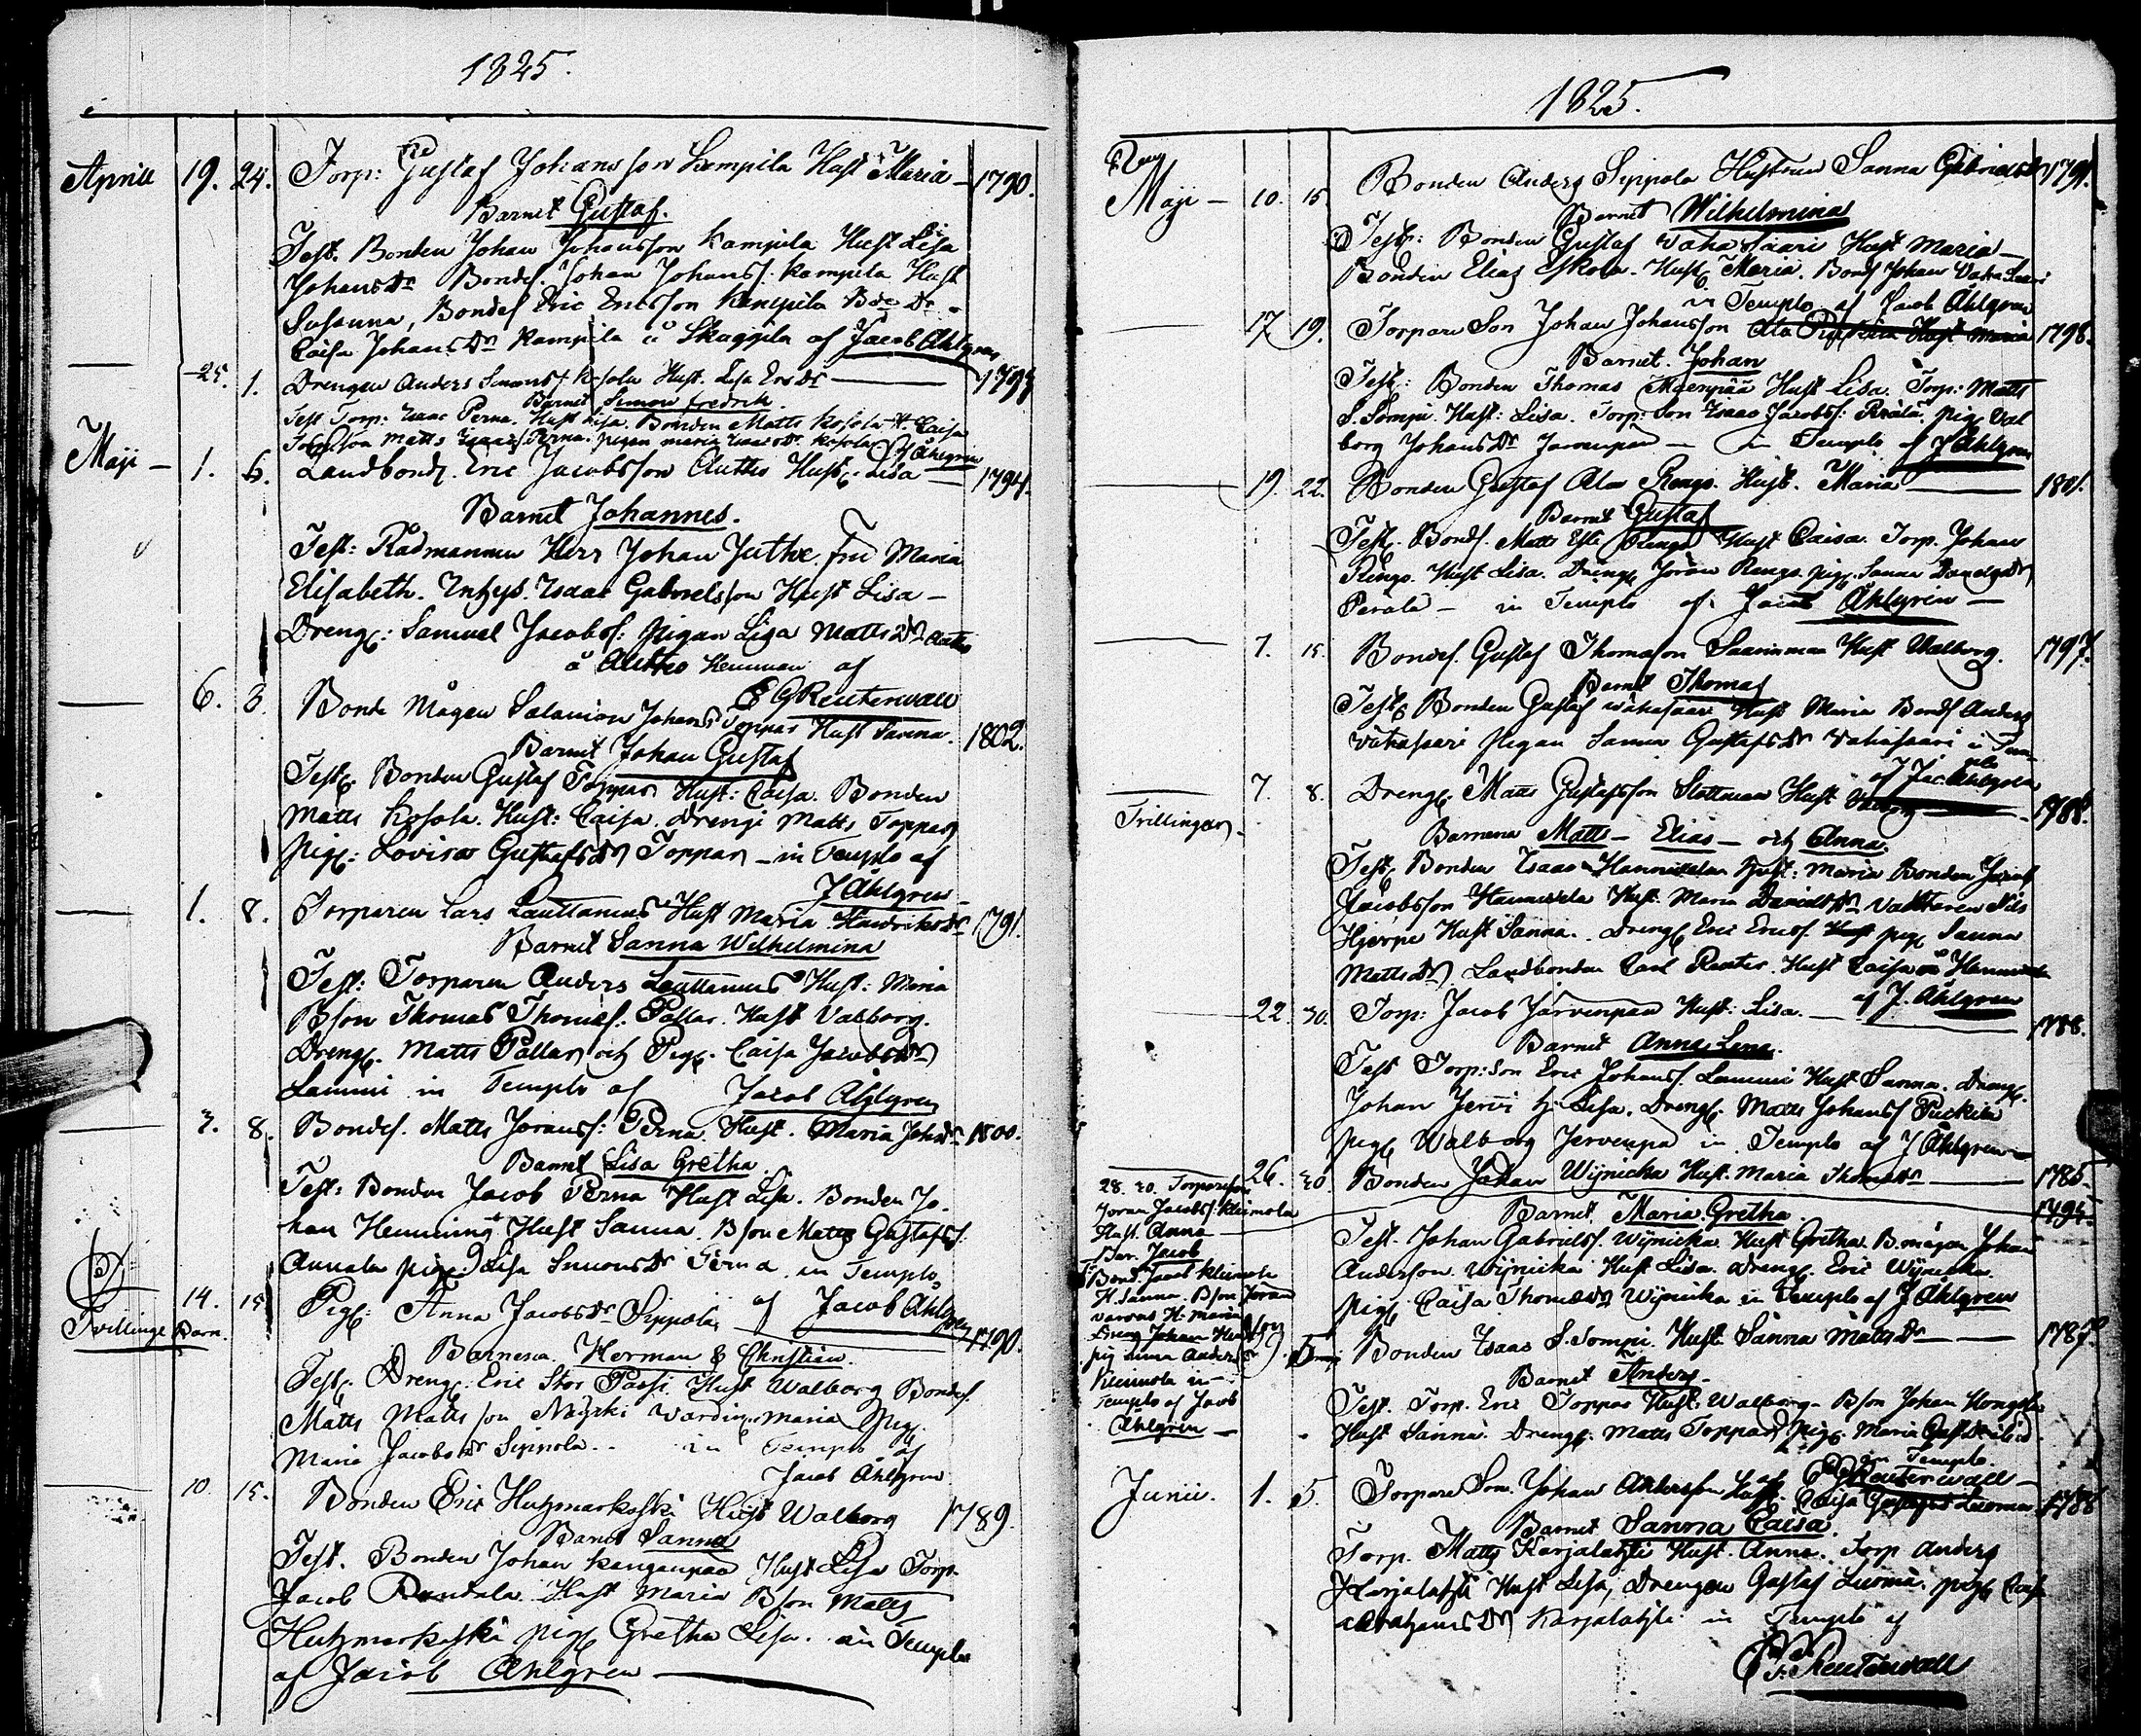 1825.
Aprill 19. 24. Torp: Gustaf Johansson Kampila Hust Maria - 1790.
Barnet Gustaf.
Test. Bonden Johan Johansson Kampila Hust Lisa
JohansDr Bondes. Johan Johanss. Kampila Hust
Susanna, Bondes Eric Ericsson Kampila
Caisa JohansDr Kampila å Skaggila af Jacob Åhlgren
25. 1. Drengen Anders Simonss Kosola Hust. Lisa EricsDr
Barnet Simon Fredrik
Test Torp: Isaac Perna. Hust Lisa. Bonden Matts Kosola H. Caisa
Matts Isaacs. Perna. pigan Maria IsaacsDr Kosola af Åhlgren
Maji - 1. 6. Landbond. Eric Jacobsson Auttio Hust. Lisa - 1794.
Barnet Johannes.
Test: Rådmannen Herr Johan Juthe. fru Maria
Elisabeth. Inhys. Isaac Gabrielsson Hust Lisa -
Dreng: Samuel Jacobs: Pigan Lisa MattsDr
å Auttio Hemman af
E G Reuterwall
6. 8. Bonde Mågen Salamon Johans Toppar Hust Sanna. 1802.
Barnet Johan Gustaf
Test. Bonden Gustaf Toppar Hust: Caisa. Bonden
Matts Kosola. Hust: Caisa. Drenge Matts Toppar
Pig: Lovisa GustafsDr Toppar - in Templo af
J Åhlgren -
1. 8. Torparen Lars Lauttamus Hust Maria HendricsDr 1791.
Barnet Sanna Wilhelmina
Test: Torparen Anders Lauttamus Hust: Maria
Bson Thomas Thomes. Pallar. Hust Valborg.
Dreng. Matts Pallar och Pig. Caisa JacobsDr
Lammi in Templo af Jacob Åhlgren
7. 8. Bondes. Matts Joranss: Perna. Hust. Maria JohsDr 1800.
Barnet Lisa Gretha.
Test: Bonden Jacob Perna Hust Lisa. Bonden Jo-
han Henning Hust Sanna. Bson Matts Gustafss
Annala pig. Lisa SimonsDr Perna in Templo
af Jacob Åhlgren
14. 15 Pig: Anna JacobsDr Sippola 1790.
Tvillinge Barn.
Barnena Herman & Christian.
Test. Dreng. Eric Stor Passi. Hust Walborg Bondes.
Matts Mattsson Näyski Wärdin Maria Pig.
Maria JacobsDr Sippola.. in Templo af
Jacob Åhlgren
10. 15. Bonden Eric Hutzmarkoski Hust Walborg 1789.
Barnet Sanna
Test. Bonden Johan Kanganpaa Hust Lisa Torp.
Jacob Rantala. Hust Maria Bson Matts
Hutzmarkoski pig Gretha Lisa. in Templo
af Jacob Åhlgren
1825.
Maji - 10. 15. Bonden Anders Sippola Hustrun Sanna GabrielsDr 1791.
Barnet Wilhelmina
Test: Bonden Gustaf Wähasaari Hust Maria -
Bonden Elias Eskola. Hust Maria. Bonds Johan Vähäsaari
in Templo af Jacob Åhlgren
17 19. Torpare Son Johan Johansson Hust Maria 1798.
Barnet. Johan
Test: Bonden Thomas Mäenpää Hust Lisa. Torp: Matts
S. Sompi. Hust: Lisa. Torp: Son Isaac Jacobs: Perälä. pig. Val
borg JohansDr Jervenpää - in Templo af J Åhlgren
19. 22. Bonden Gustaf Ala Rengo. Hust. Maria 1801.
Barnet Gustaf
Test. Bonds. Matts Yli Rengo Hust Caisa. Torp. Johan
Rengo. Hust Lisa. Dreng Joran Rengo. pig. Sanna DanielsDr
Perälä - in Templo af Jacob Åhlgren -
7. 15. Bondes. Gustaf Thomason Saarimaa Hust Walborg. 1797.
Barnet Thomas
Test. Bonden Gustaf Wähäsaari Hust Maria Bonds Anders
Vähäsaari Pigan Sanna GustafsDr Vähäsaari i Tem-
plo af Jac. Åhlgren
7. 8. Dreng. Matts Gustafsson Slottman Hust 1788.
Trillingar -
Barnena Matts - Elias - och Anna.
Test. Bonden Isaac Hannuksela Hust: Maria Bonden Jacob
Jacobsson Hannuksela Hust. Maria DavidsDr Nils
Hjerpe Hust Sanna. Dreng Eric Erics. Hust pig Sanna
MattsDr Landbonden Carl Reuter. Hust Caisa å
af J. Åhlgren
22. 30. Torp: Jacob Järvenpää Hust: Lisa. - 1788.
Barnet Anna Lena.
Test Torp: Son Eric Johans. Lammi Hust Sanna. Dreng.
Johan Jervi h. Lisa. Dreng. Matts Johans Puckila
pig. Walborg Jervenpä in Templo af J Åhlgren -
26. 30. Bonden Johan Wijnicka Hust. Maria ThomsDr 1785
1795.
Barnet. Maria Gretha
Test. Johan Gabrielss. Wijnicka Hust Gretha. B. mågen Johan
Anderson. Wijnicka Hust Lisa. Dreng. Eric Wijnicka.
pig. Caisa ThomsDr Wijnicka in Templo af J Åhlgren
28. 30. Torpareson
Joran Jacobs: Kleimola
Hust. Anna
Bar. Jacob
Bond. Jacob Kleimola
H. Sanna. Bson Joran
H. Maria
Dreng Johan
pig Anna Anders
in
Templo af Jacob
Åhlgren -
Bonden Isaac S. Sompi. Hust. Sanna MattsDr 1787.
Barnet Anders -
Test. Torp. Eric Toppar Hust: Walborg - Bson Johan
Hust Sanna. Dreng: Matts Toppar pig. Maria
in Templo.
af E G Reuterwall -
Junii. 1. 5. Torpare Son. Johan Anderson Hust. Caisa 1788
Barnet Sanna Caisa.
Torp. Matts Karjalahti Hust. Anna. Torp Anders
Karjalahti Hust Lisa, Drengen Gustaf Luoma. pig
AbrahamsDr Karjalahti in Templo af
E G. Reuterwall